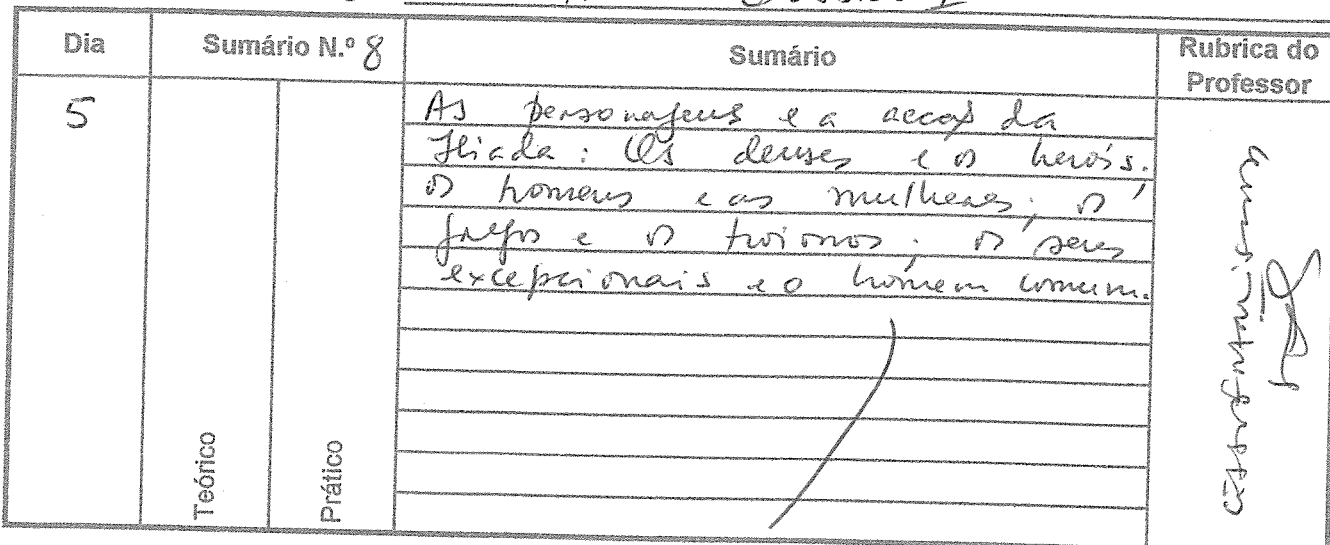 Dia
Sumário N.º 8
Sumário
Rubrica do
Professor
5
As personagens e a acção da
Ilíada: Os deuses e os heróis.
os homens e as mulheres; os
gregos e os troianos; os seres
excepcionais e o homem comum.
Teórico
Prático